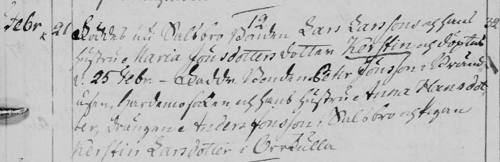 12
Febr. 21 Föddes uti Salsbro Bonden Lars Larssons och hans
hustrus Maria Jonsdotters dotter Kerstin och döptes
d. 25 Febr. – Faddr. Bonden Jonsson i
och hans hustru Anna Hansdot
ter, Drängen Anders Jonsson i Salsbro och Pigan
Kerstin Larsdotter i